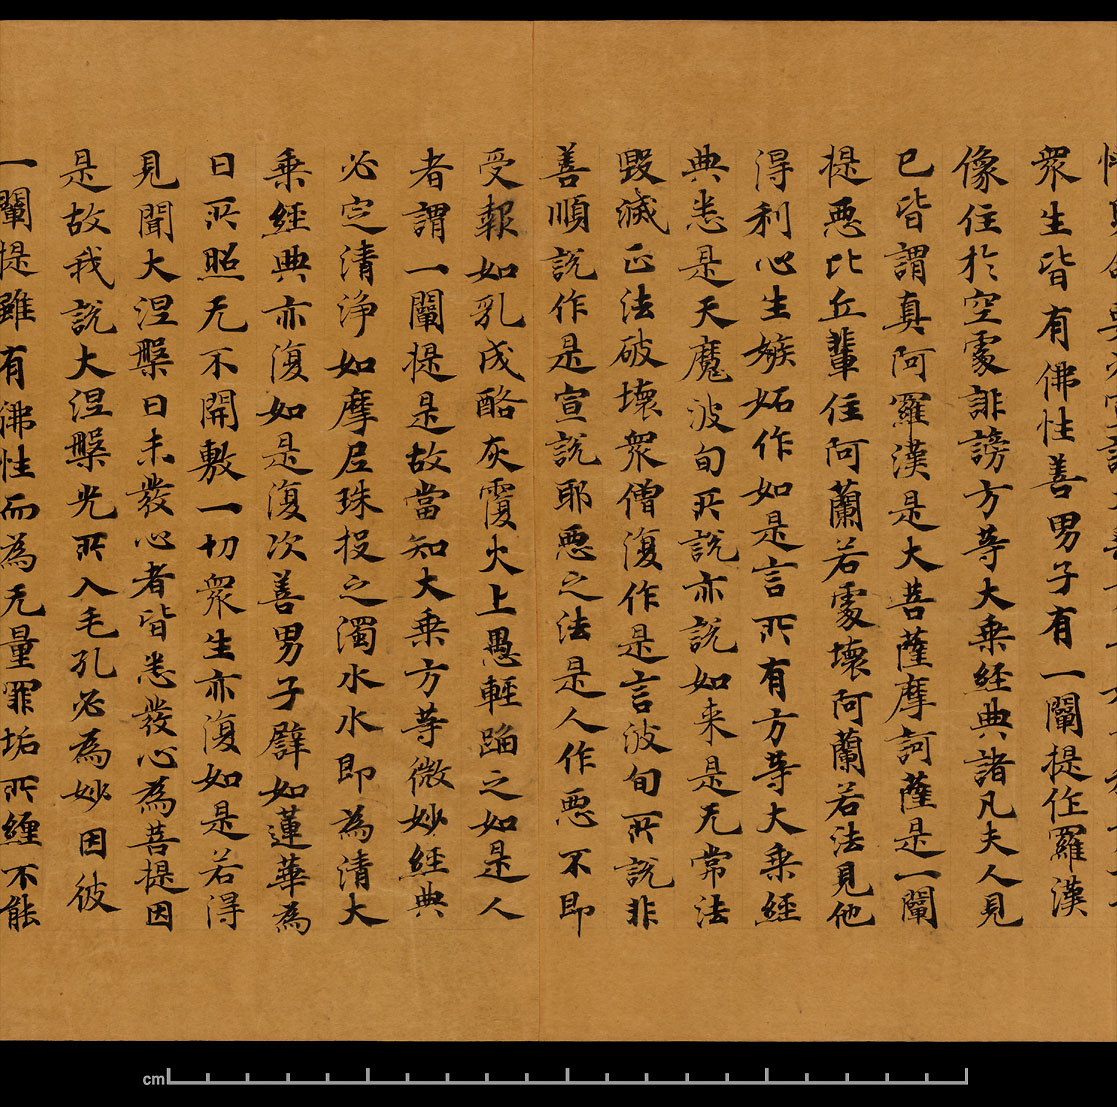 衆生皆有佛性善男子有一闡提作羅漢
像住於空處誹謗方等大乗經典諸凡夫人見
已皆謂真阿羅漢是大菩薩摩訶薩是一闡
提惡比丘輩住阿蘭若處壞阿蘭若法見他
得利心生嫉妬作如是言所有方等大乗經
典悉是天魔波旬所說亦說如来是无常法
毀滅正法破壞衆僧復作是言波旬所說非
善順說作是宣說耶惡之法是人作惡不即
受報如乳成酪灰覆火上愚輕蹈之如是人
者謂一闡提是故當知大乗方等微妙經典
必定清淨如摩尼珠投之濁水水即為清大
乗經典亦復如是復次善男子譬如蓮華為
日所照无不開敷一切衆生亦復如是若得
見聞大涅槃日未發心者皆悉發心為菩提因
是故我說大涅槃光所入毛孔必為妙因彼
一闡提雖有佛性而為无量罪垢所纏不能
cm